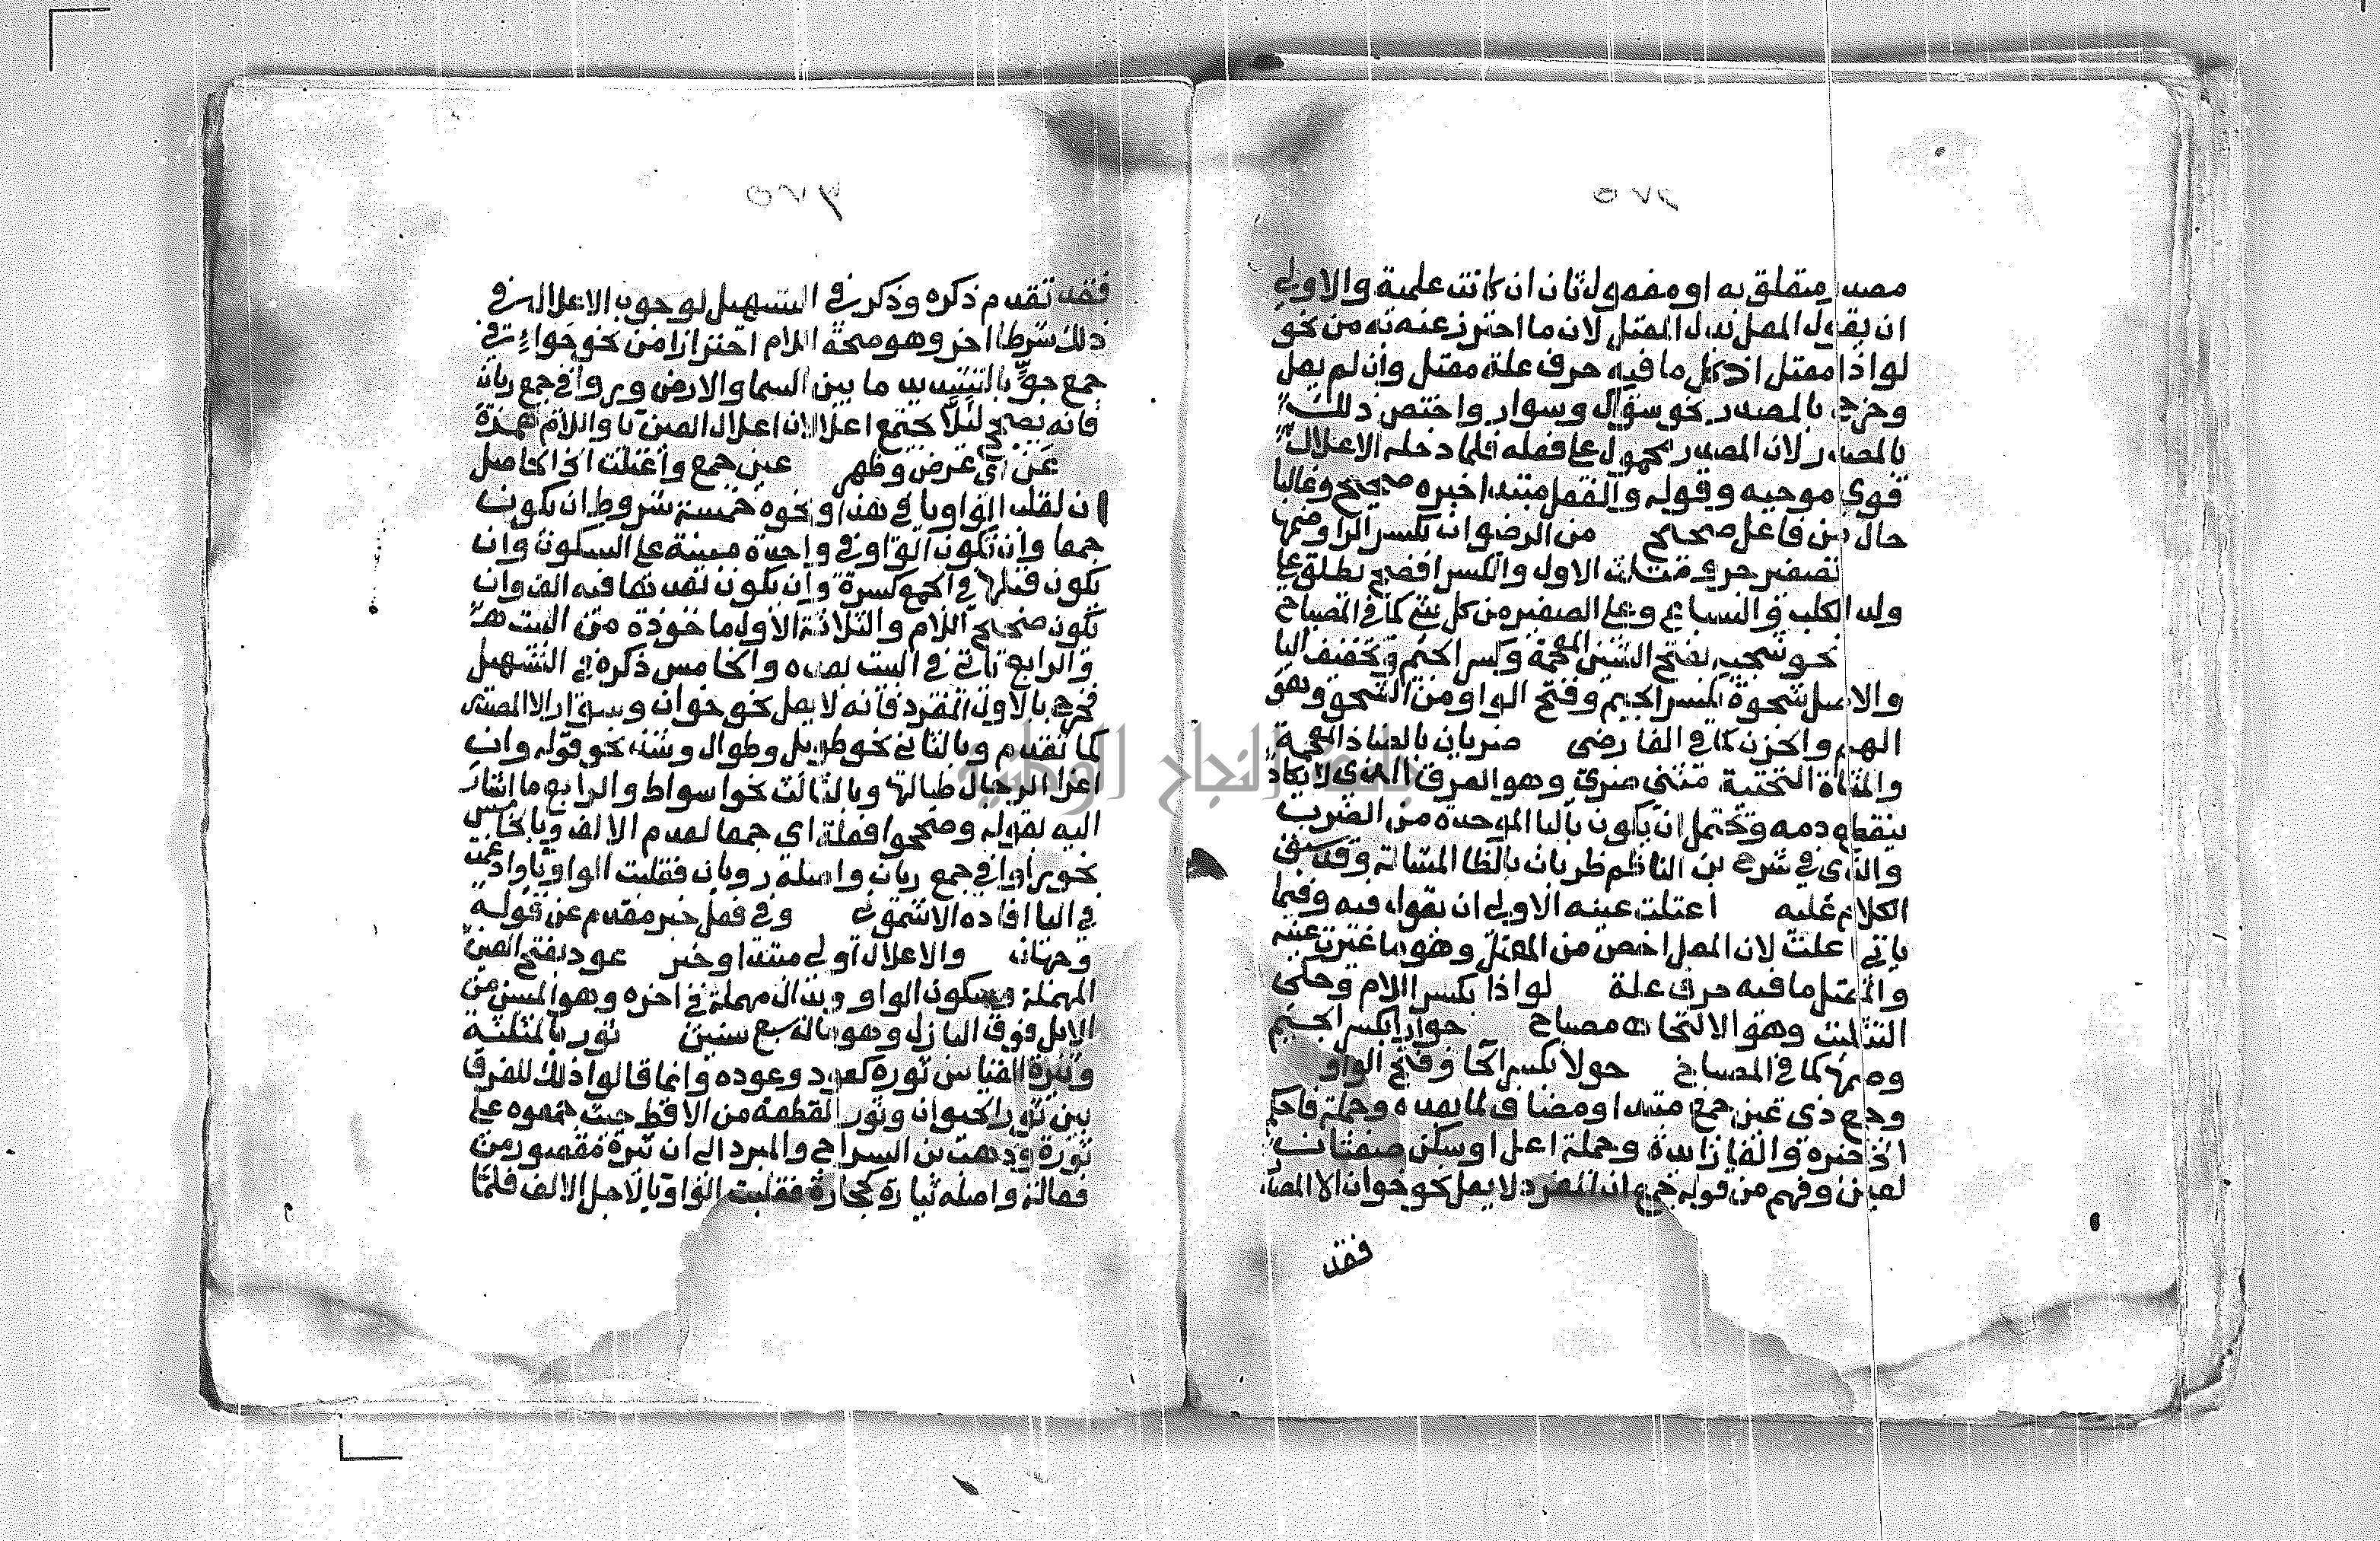 ٢٧٥
مصدر متعلق به او مفعول ثان ان كانت علمية والاولى
ان يقول المعل بدل المعتل لان ما احترز عنه به من نحو
لواذا معتل اذ كل ما فيه حرف علة معتل وان لم يعل
وخرج بالمصدر نحو سواك وسوار واختص ذلك
بالمصدر لان المصدر محمول على فعله فلما دخله الاعلال
قوي موجبه وقوله والفعل مبتدا خبره صحيح وغالبا
حال من فاعل صحيح من الرضوان بكسر الرا وضمها
تصغير جرو مثلث الاول والكسر افصح يطلق على
ولد الكلب والسباع وعلى الصغير من كل شئ كما في المصباح
نحو شجيه بفتح الشين المعجمة وكسر الجيم وتخفيف اليا
والاصل شجوة بكسر الجيم وفتح الواو من الشجو وهو
الهم والحزن كما في الفارضى ضريان بالضاد المعجمة
والمثناة التحتية مثنى ضرى وهو العرق الذي لا يكاد
ينقطع دمه ويحتمل ان يكون بالبا الموحدة من الضرب
والذى في شرح بن الناظم ظربان بالظا المشالة وقد سبق
الكلام عليه اعتلت عينه الاولى ان يقول فيه وفيما
ياتي اعلت لان المعل اخص من المعتل وهو ما غيرت عينه
والمعتل ما فيه حرف علة لواذا بكسر اللام وحكى
التثليث وهو الالتجاء مصباح جوارا بكسر الجيم
وضمها كما في المصباح حولا بكسر الحا وفتح الواو
وجمع ذى عين جمع مبتدا ومضاف لما بعده وجملة فاحكم
الخ خبره والفا زائدة وجملة اعل او سكن صفتان
لعين وفهم من قوله جمع ان المفرد لا يعل نحو خوان الا المصدر
فقد
٣٧٥
فقد تقدم ذكره وذكر في التسهيل لوجوب الاعلال في
ذلك شرطا اخر وهو صحة اللام احترازا من نحو جواء في
جمع جوّ بالتشديد ما بين السما والارض ورواء في جمع ريان
فانه يصح لئلا يجتمع اعلالان اعلال العين يا واللام همزة
عَنّ اى عرض وظهر عين جمع واعتلت الخ الحاصل
ان لقلب الواو يا في هذا ونحوه خمسة شروط ان يكون
جمعا وان تكون الواو في واحده مبنية على السكون وان
يكون قبلها في الجمع كسرة وان يكون بعدها فيه الف وان
يكون صحيح اللام والثلاثة الاول ماخوذة من البيت هنا
والرابع ياتي في البيت بعده والخامس ذكره في التسهيل
فخرج بالاول المفرد فانه لا يعل نحو خوان وسوار الا المصدر
كما تقدم وبالثاني نحو طويل وطوال وشذ نحو قوله وان
اعزا الرجال طيالها وبالثالث نحو اسواط والرابع ما اشار
اليه بقوله وصححوا فعلة اى جمعا لعدم الالف وبالخامس
نحو رواء في جمع ريان واصله رويان فقلبت الواو يا وادغمت
في اليا افاده الاشموني وفي فعل خبر مقدم عن قوله
وجهان والاعلال اولى مبتدا وخبر عود بفتح العين
المهملة وسكون الواو وبدال مهملة في اخره وهو المسن من
الابل فوق البازل وهو ماله سبع سنين ثور بالمثلثة
وثيرة القياس ثورة كعود وعوده وانما قالوا ذلك للفرق
بين ثور الحيوان وثور القطعة من الاقط حيث جمعوه على
ثورة وذهب بن السراج والمبرد الى ان ثيرة مقصور من
فعالة واصله ثيارة كحجارة فقلبت الواو يا لاجل الالف فلما
جامعة النجاح الوطنية